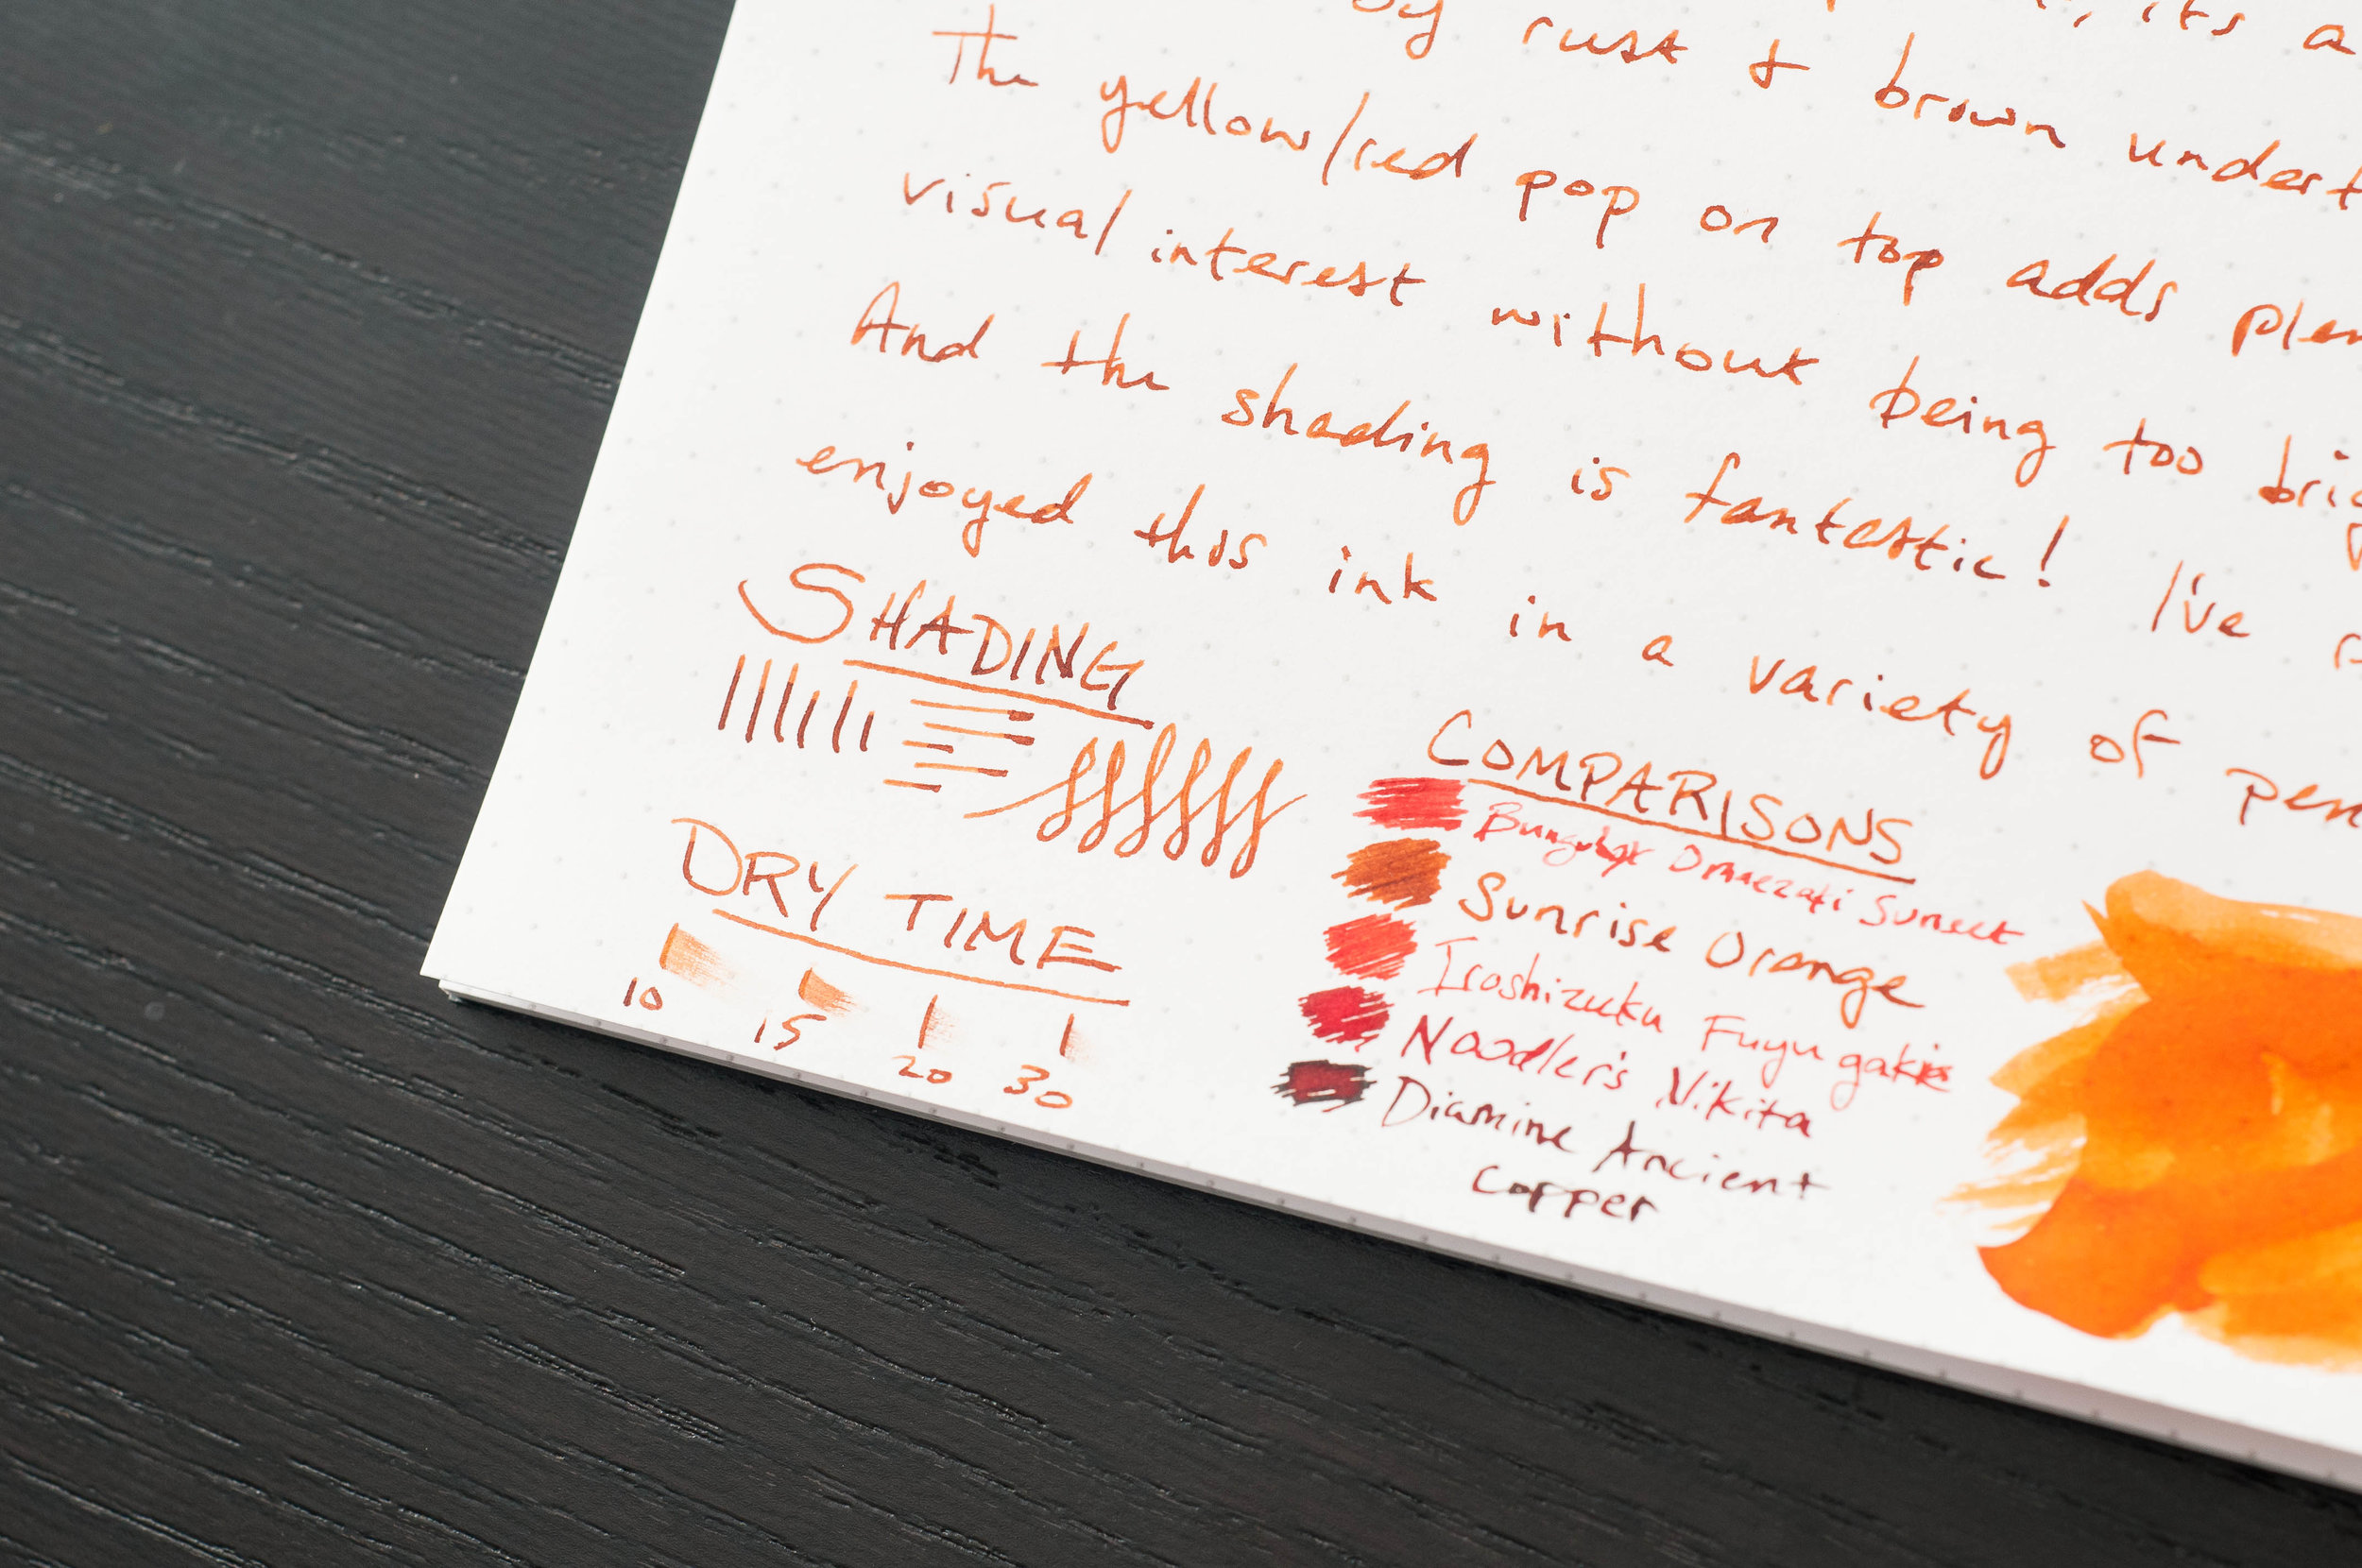 by rust & brown undert
its a
The yellow/red pop on top adds plen
visual interest without being too brig
And the shading is fantastic! I've
enjoyed this ink in a variety of pen
SHADING
DRY TIME
10 15 20 30
COMPARISONS
Omaezaki Sunset
Sunrise Orange
Iroshizuku Fuyu gaki
Noodler's Nikita
Diamine Ancient
Copper